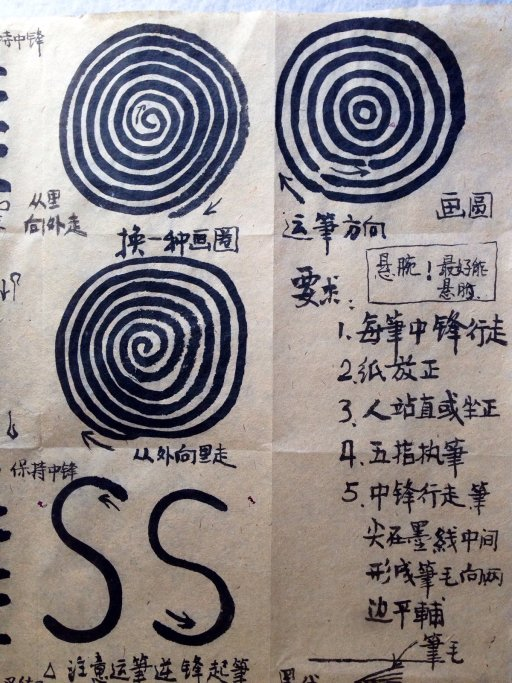 持中锋
从里
向外走
换一种画圈
运筆方向
画圆
悬腕！最好能
悬肘.
要求：
1. 每筆中锋行走
2. 纸放正
3. 人站直或坐正
4. 五指执筆
5. 中锋行走筆
尖在墨线中间
形成筆毛向两
边平輔
筆毛
从外向里走
保持中锋
S S
△ 注意运筆逆锋起筆